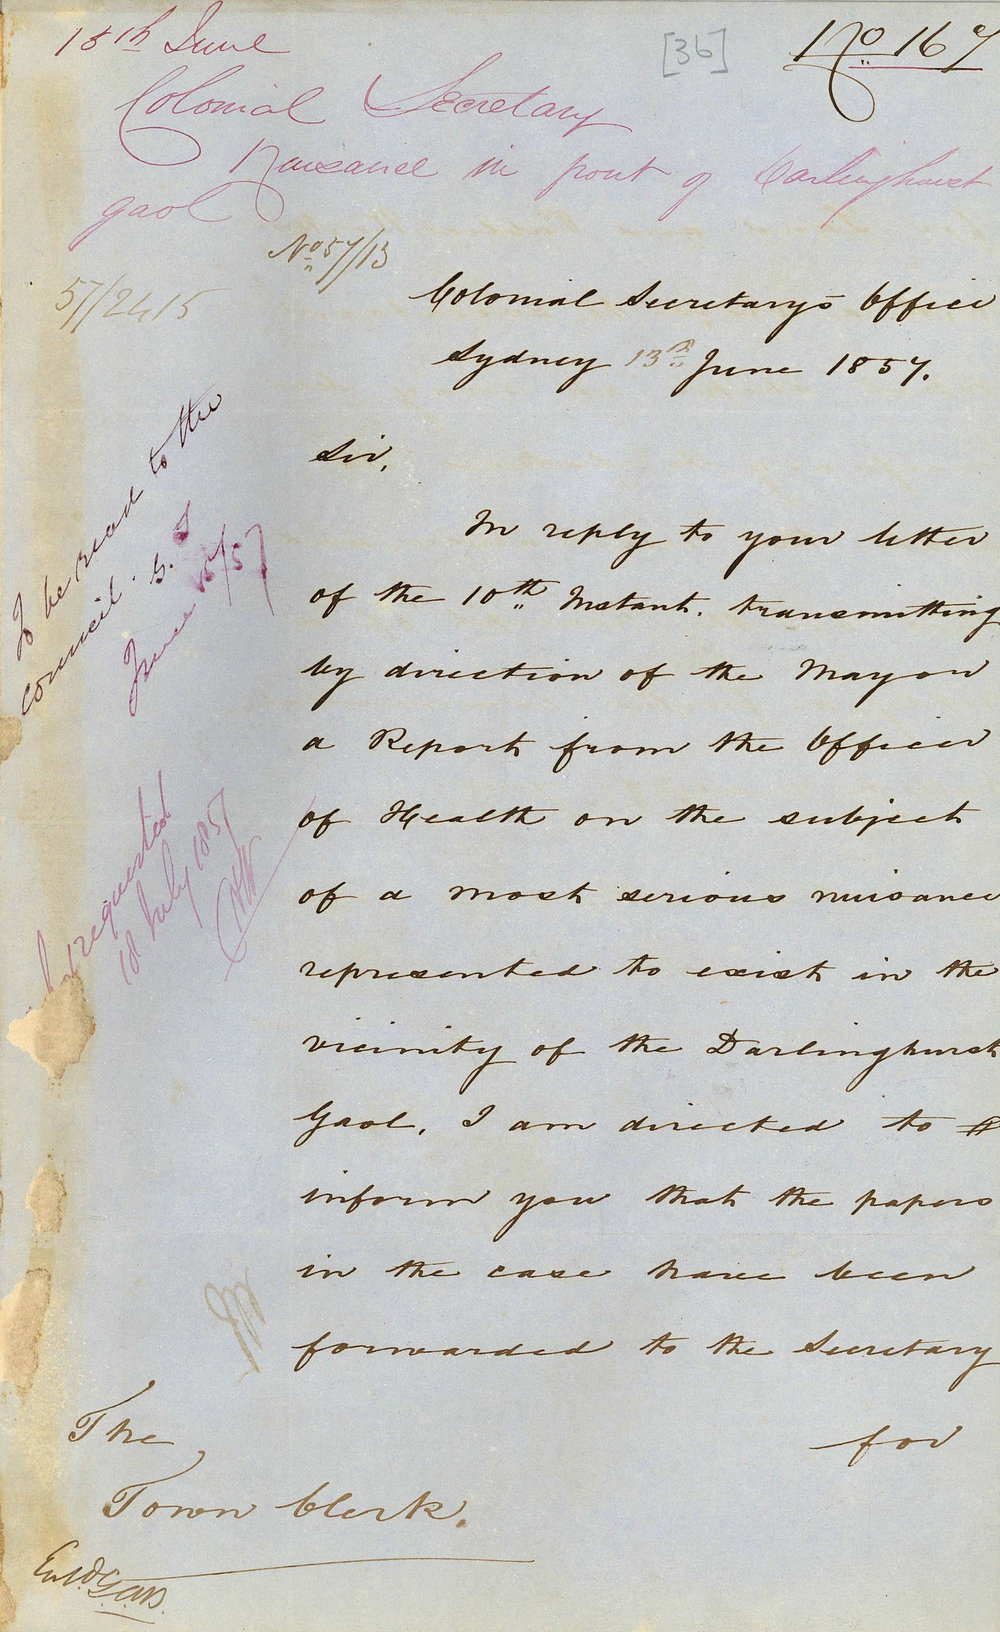 15th June
[36]
No 167
Colonial Secretary
Nuisance in front of Darlinghurst
gaol
No 57/13
57/2415
Colonial Secretary's Office
Sydney 13th June 1857.
To be read to the
Council
June 15/57
Sir,
In reply to your letter
of the 10th Instant. transmitting
by direction of the Mayor
a Report from the Officer
of Health on the subject
of a most serious nuisance
represented to exist in the
vicinity of the Darlinghurst
Gaol, I am directed to
inform you that the papers
in the case have been
forwarded to the Secretary
for
requested
July 1857
The
Town Clerk.